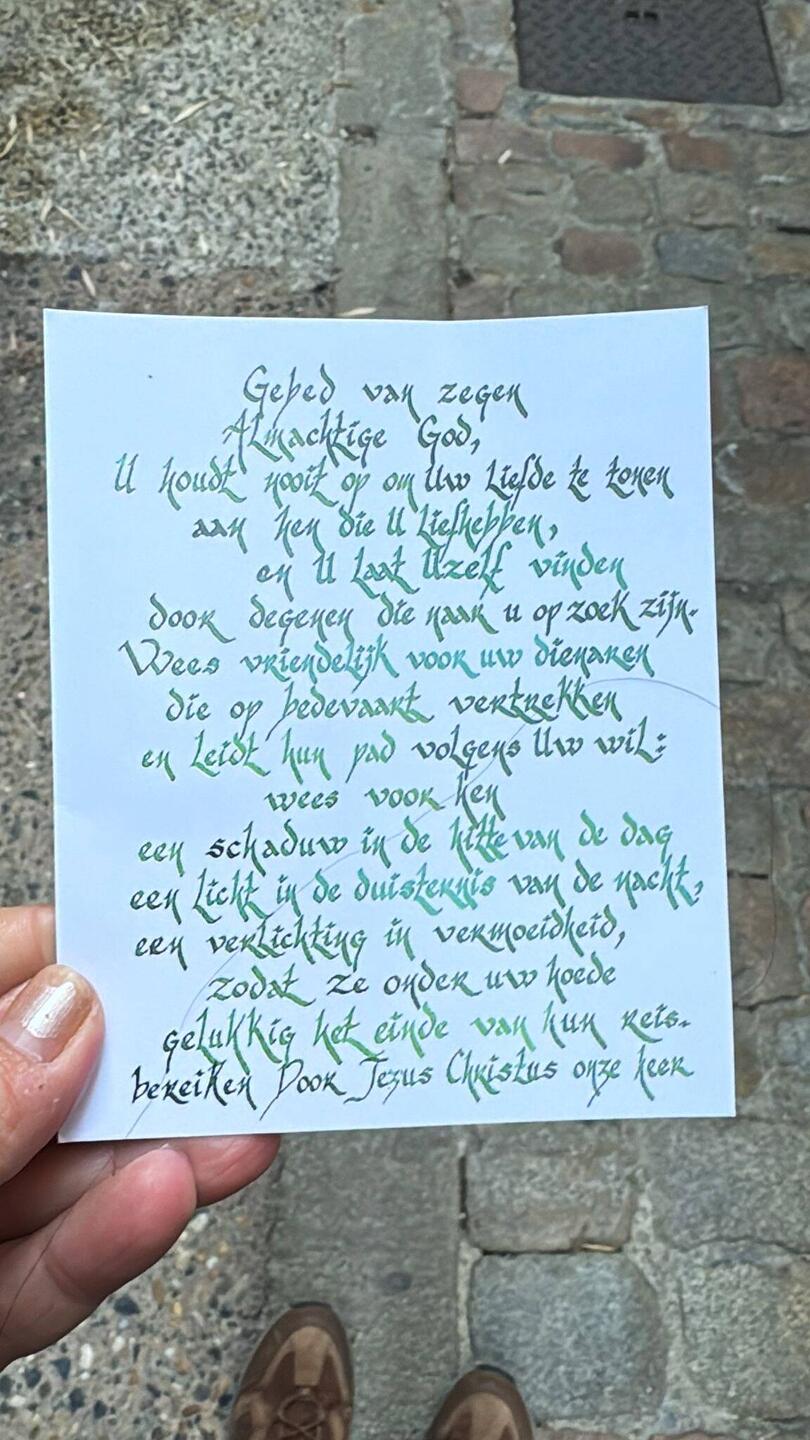 Gebed van zegen
Almachtige God,
U houdt nooit op om Uw Liefde te tonen
aan hen die U Liefhebben,
en U laat Uzelf vinden
door degenen die naar u op zoek zijn.
Wees vriendelijk voor uw dienaren
die op bedevaart vertrekken
en Leidt hun pad volgens Uw wil:
wees voor hen
een schaduw in de hitte van de dag
een Licht in de duisternis van de nacht,
een verlichting in vermoeidheid,
zodat ze onder uw hoede
gelukkig het einde van hun reis.
bereiken Door Jezus Christus onze heer